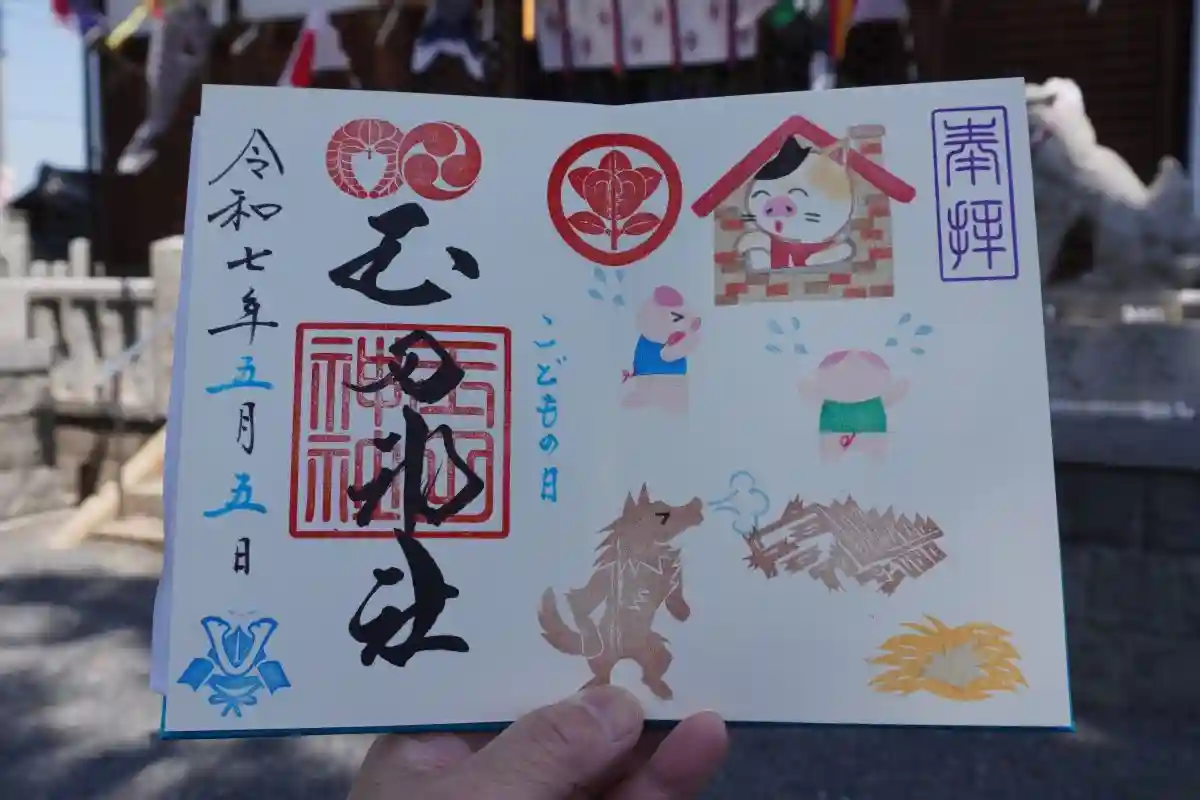 奉拝
こどもの日
玉田神社
玉田
神社
令和七年五月五日